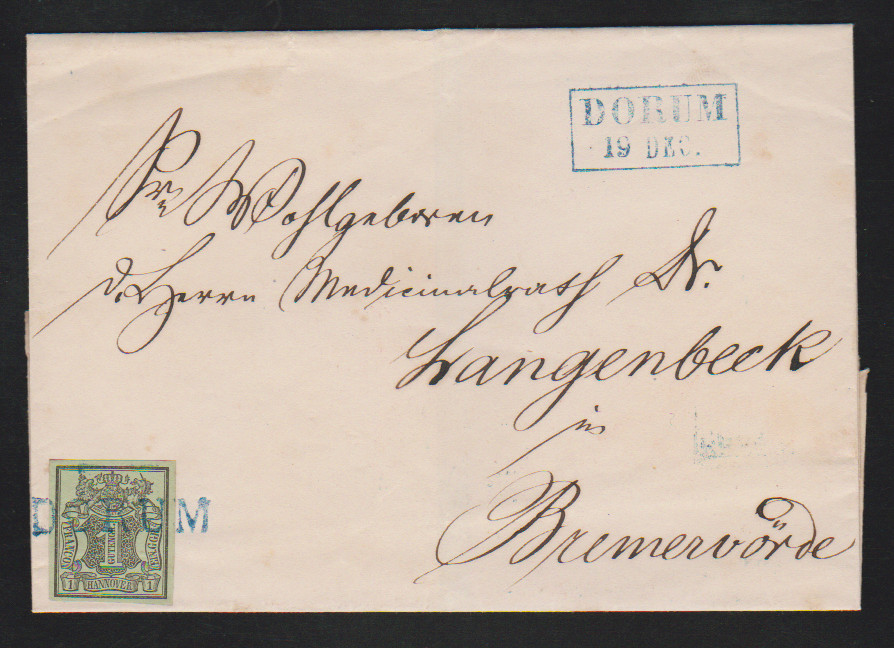 DORUM
19 DEC.
Sr. Wohlgeboren
d. Herrn Medicinalrath Dr.
Langenbeck
in
Bremervörde
DORUM
FRANCO
1
GUTENGR
1 HANNOVER 1